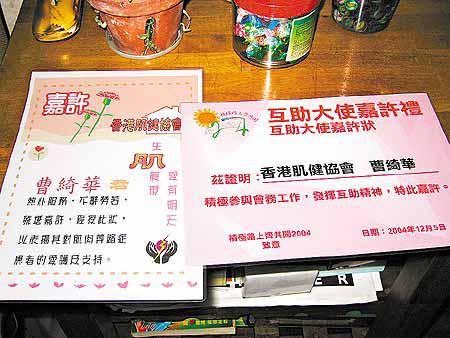 嘉許
香港肌健協會
曹綺華 君
熱心服務,不辭勞苦,
嘉許,
以表揚其對肌肉萎縮症
患者的愛護及支持。
生
肌
互助大使嘉許禮
互助大使嘉許狀
茲證明:香港肌健協會 曹綺華
積極參與會務工作,發揮互助精神,特此嘉許。
積極路上齊共闖2004
致意
日期:2004年12月5日